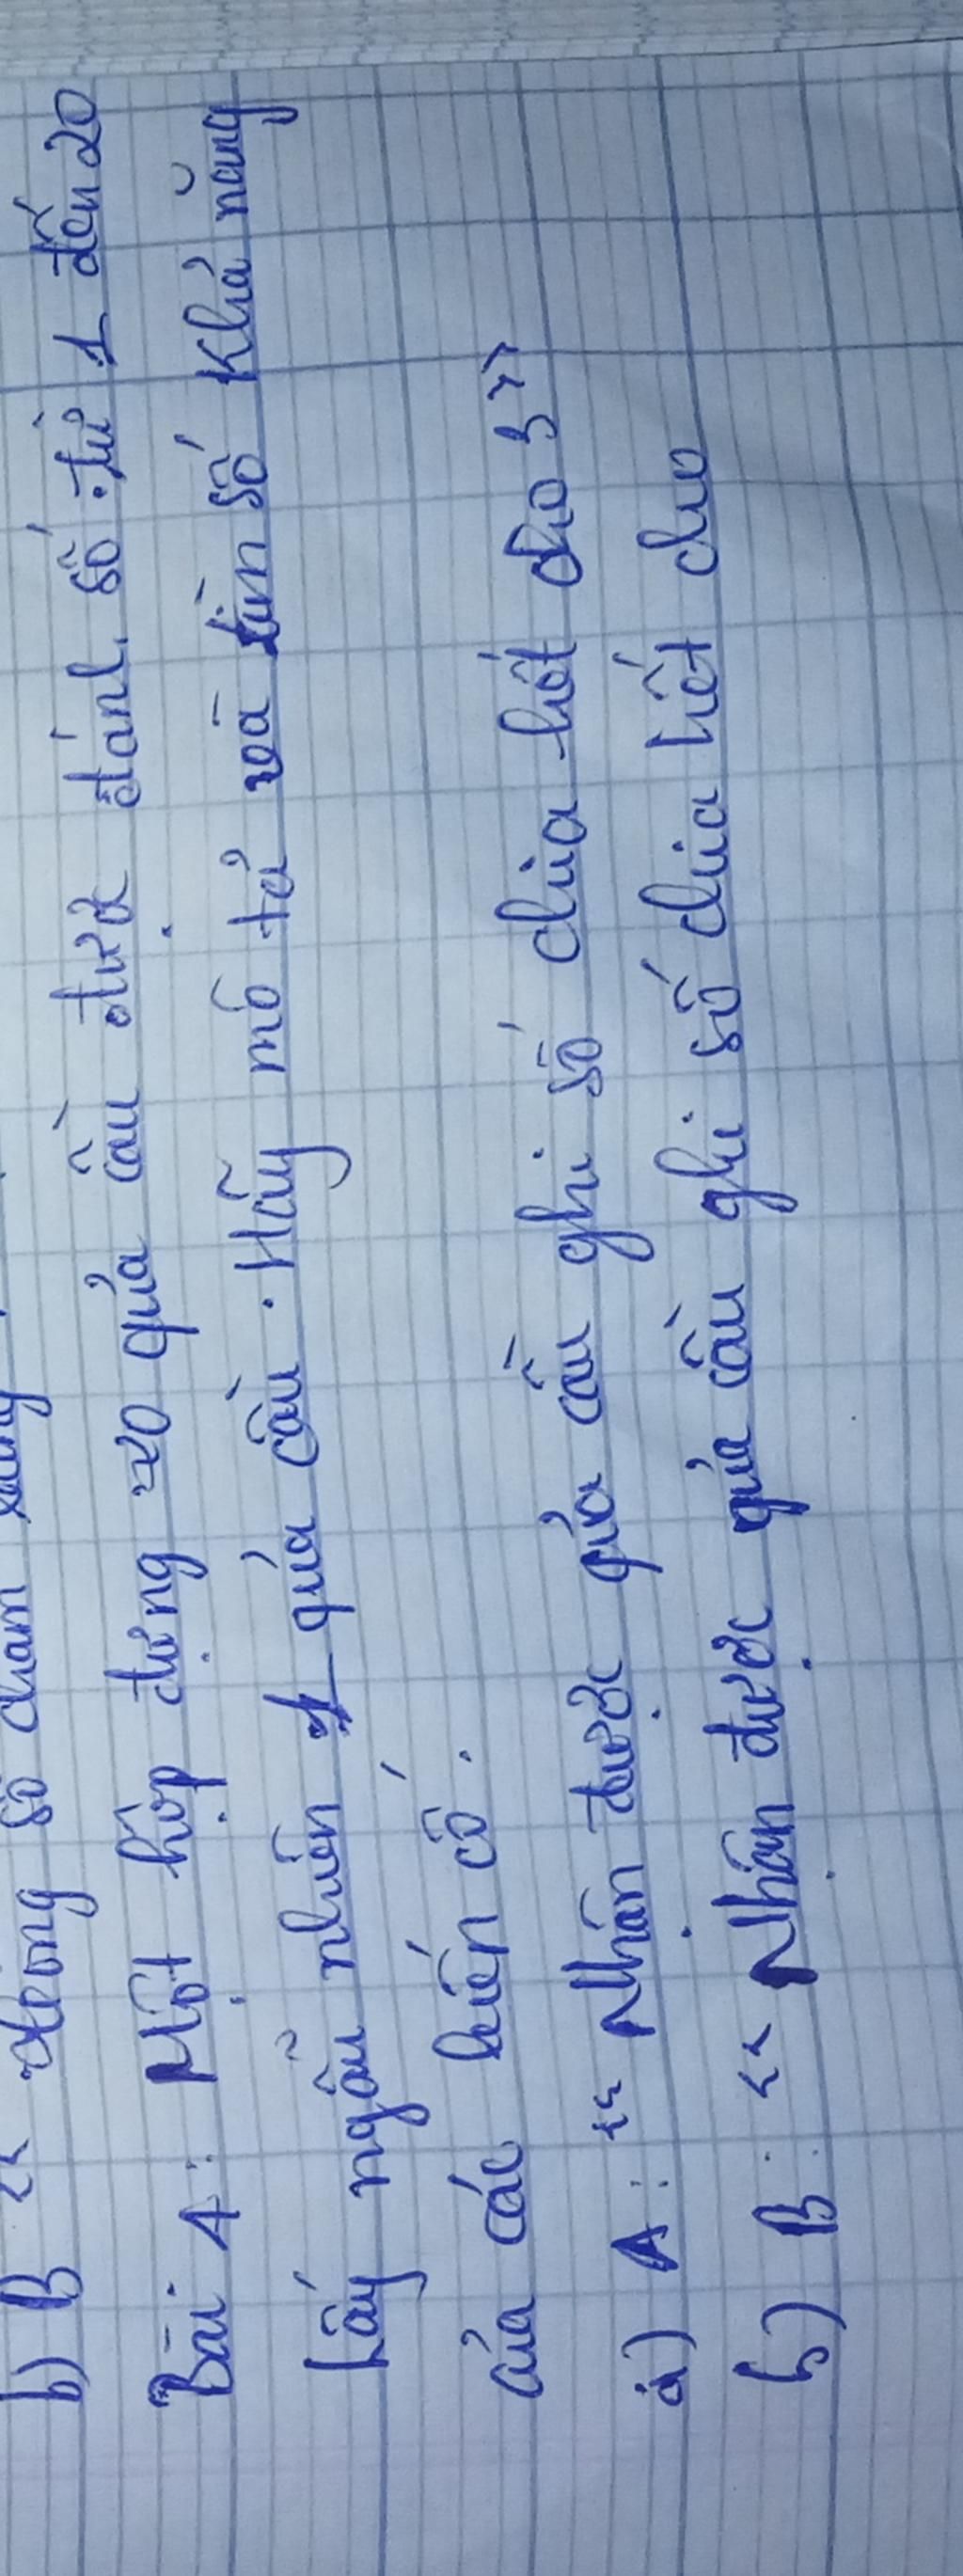 b) B "
Bài 4: Một hộp đựng 20 quả cầu được đánh số từ 1 đến 20
Lấy ngẫu nhiên 1 quả cầu. Hãy mô tả và tìm số Khả năng
của các biến cố.
a) A: " Nhận được quả cầu ghi số chia hết cho 3"
b) B: " Nhận được quả cầu ghi số chia hết cho